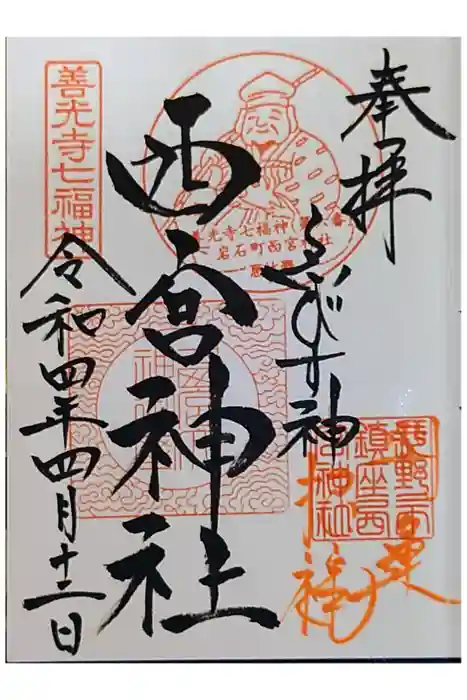 奉拝
ゑびす神
西宮神社
令和四年四月十二日
善光寺七福神
善光寺七福神(第六番)
岩石町西宮神社
恵比寿
長野市
鎮座西
宮神社
招福